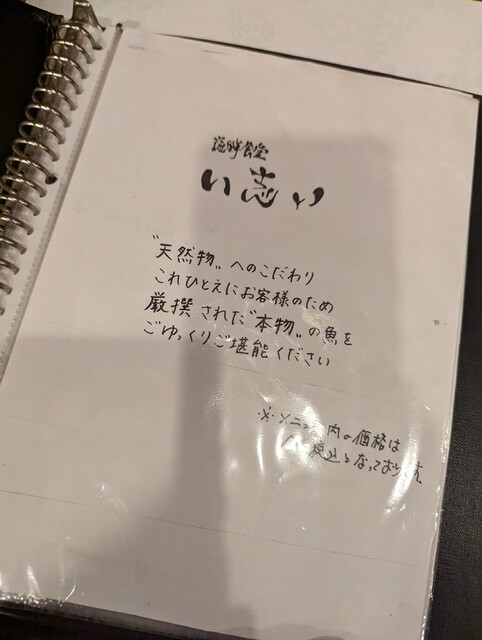 海鮮食堂
い志い
〝天然物〟へのこだわり
これひとえにお客様のため
厳撰された〝本物〟の魚を
ごゆっくりご堪能ください
※メニュー内の価格は
税込となっております